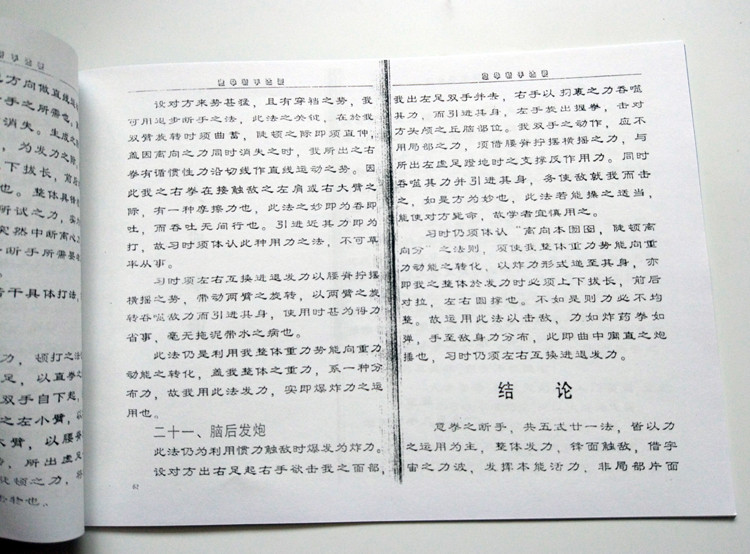 方向做直线运
手之所需也；
消失。生成之
，为发力之
上下拔长，前后
也。整体具体
所试之力，
突然中断离心
断手所需要
若干具体打法，
力，顿打之
足，以直拳
双手自下起，
之左小臂，以
臂，以腰脊
，所出虚足
顿之力，将
物也。
设对方来势甚猛，且有穿裆之势，我
可用退步断手之法，此法之关键，在於我
双臂旋转时须曲蓄，陡顿之际即须直伸，
盖因离向之力同时消失之时，我所出之右
拳有循惯性力沿切线作直线运动之势。因
此我之右拳在接触敌之左肩或右大臂之
际，有一种摩擦力也，此法之妙即为吞即
吐，而吞吐无间行也。引进近其力即为
打，故习时须体认此种用力之法，不可草
率从事。
习时须左右互换进退发力以腰脊拧摆
横摇之势，带动两臂之旋转，以两臂之旋
转吞噬敌力而引进其身，使用时甚为得力
省事，毫无拖泥带水之病也。
此法仍是利用我整体重力势能向重力
动能之转化，盖我整体之重力，系一种分
布力，故我用此法发力，实即爆炸力之运
用也。
二十一、脑后发炮
此法仍为利用惯力触敌时爆发为炸力。
设对方出右足起右手欲击我之面部，
62
我出左足双手并击，右手以扪裹之力吞噬
其力，而引进其身，左手旋出握拳，击对
方头颅之丘脑部位。我双手之动作，应不
用局部之力，须借腰脊拧摆横摇之力，与
所出左虚足蹬地时之支撑反作用力。同时
吞噬其力并引进其身，务使敌就我而击
之，如是方为妙也，此法若能操之适当，
能使对方毙命，故学者宜慎用之。
习时仍须体认“离向本圆图，陡顿离
向分”之法则，须使我整体重力势能向重
力动能之转化、以炸力形式递至其身，亦
即我之整体於发力时必须上下拔长，前后
对拉，左右圆撑也。不如是则力必不均
整。故运用此法以击敌，力如炸药拳如
弹，手至敌身力分布，此即曲中寓直之炮
捶也，习时仍须左右互换进退发力。
结 论
意拳之断手，共五式廿一法，皆以力
之运用为主，整体发力、锋面触敌，借宇
宙之力波，发挥本能活力、非局部片面